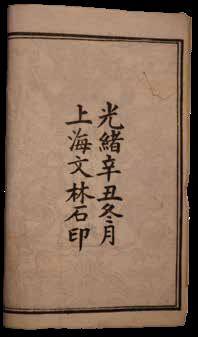 光緒辛丑冬月
上海文林石印